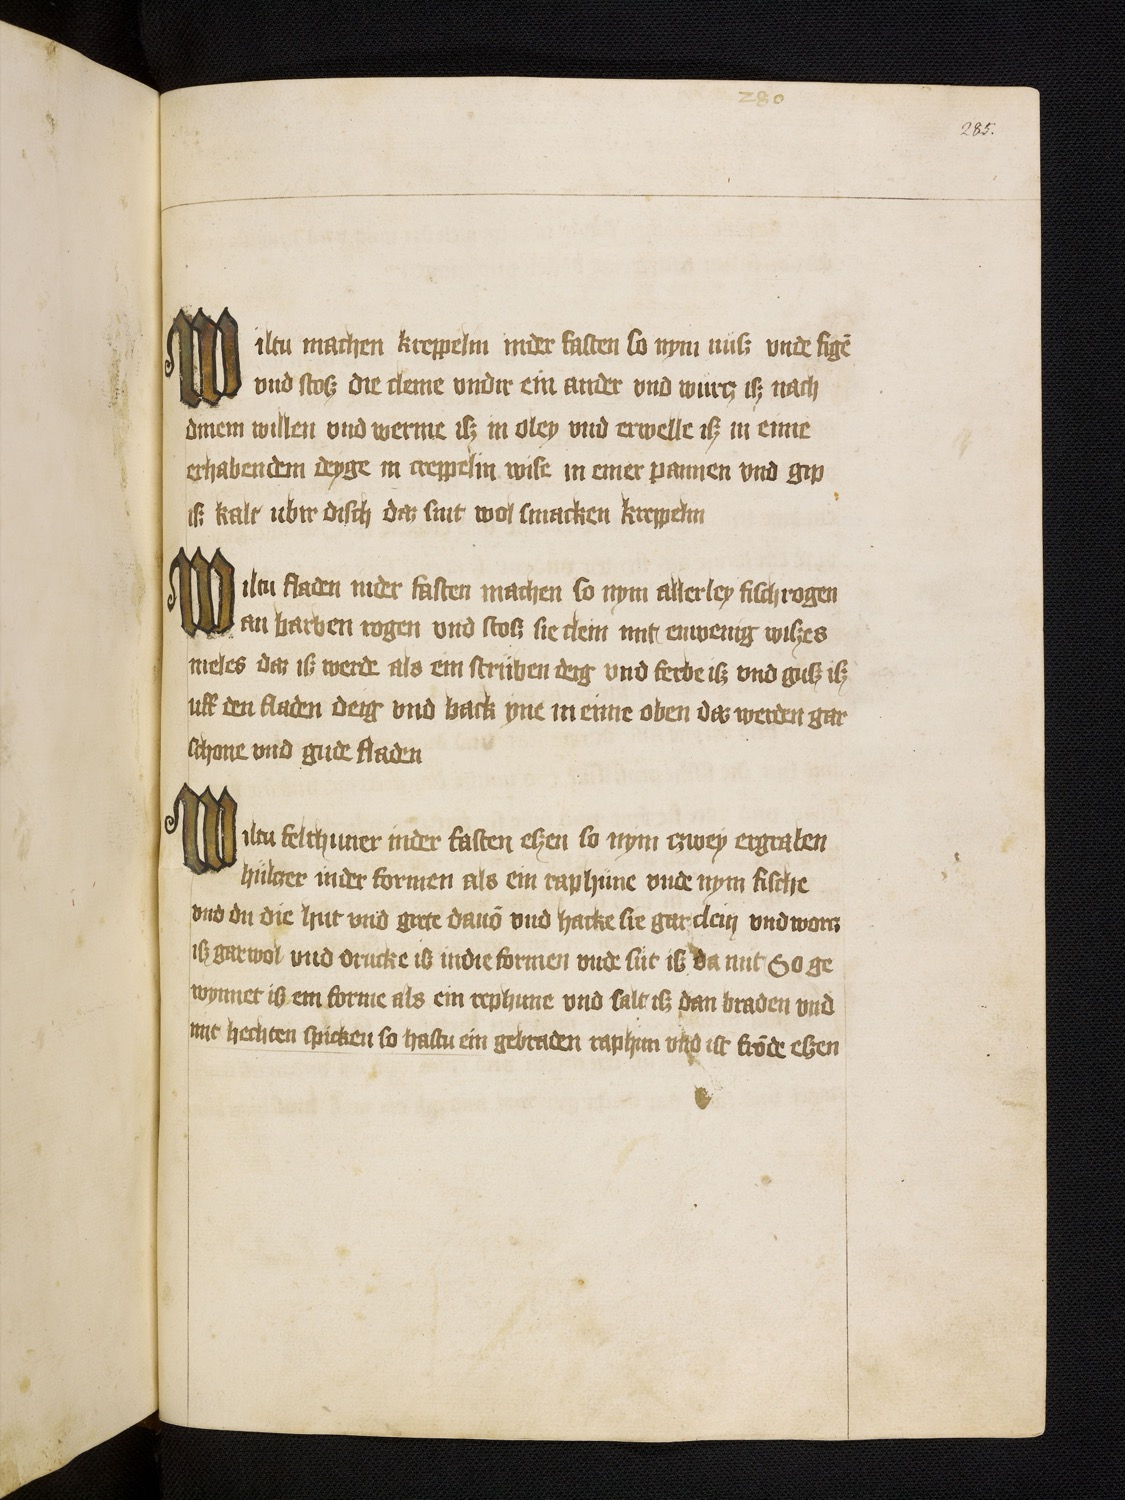 280
285.
Wiltu machen kreppelin inder fasten so nym nüsz vnde figē
vnd stosz die cleine vndir ein ander vnd würcz isz nach
dinem willen vnd werme isz in oley vnd erwelle isz in eime
erhabendem deyge in creppelin wise in einer pannen vnd gip
isz kalt ubir disch daz sint wol smacken kreppelin
Wiltu fladen inder fasten machen so nym allerley fischrogen
an barben rogen vnd stosz sie clein mit einwenig wiszes
meles daz isz werde als ein strüben deig vnd ferbe isz vnd gusz isz
uff den fladen deig vnd back yne in eime oben daz werden gar
schone vnd gude fladen
Wiltu felthuner inder fasten eszen so nym czwey ergraben
hülczer inder formen als ein raphune vnde nym fische
vnd du die hut vnd grete dauō vnd hacke sie gar clein vnd worcz
isz gar wol vnd drucke isz indie formen vnde süt isz da mit So ge
wynnet isz ein forme als ein rephune vnd salt isz dan braden vnd
mit hechten spicken so hastu ein gebraden raphun vnd ist frōde eszen